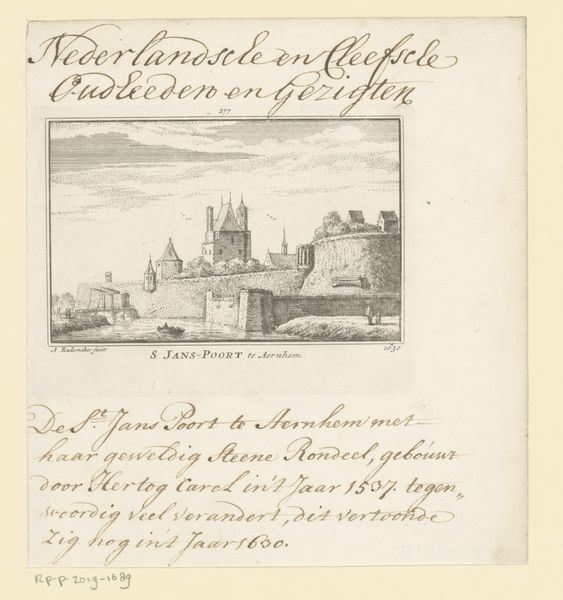 Nederlandsche en Cleefsche
Oudheeden en Gezigten
277
A Rademaker fecit
1630
S. JANS-POORT te Aernhem.
De St. Jans Poort te Aernhem met
haar geweldig Steene Rondeel, gebouwt
door Hertog Carel in't Jaar 1537. tegen„
woordig veel verandert, dit vertoonde
zig nog int Jaar 1630.
RP-P-2019-1689